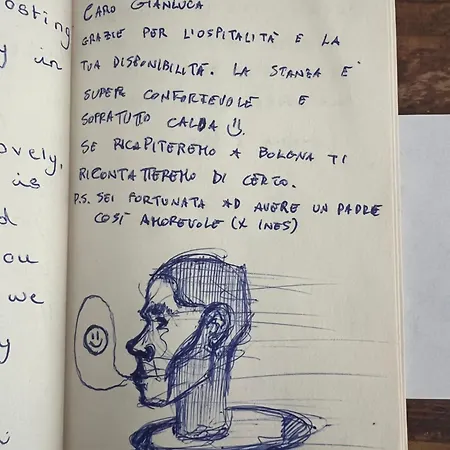 osting
y in
ovely.
is
d
ou
we
y
i
CARO GIANLUCA
GRAZIE PER L'OSPITALITÀ E LA
TUA DISPONIBILITÀ. LA STANZA E'
SUPER CONFORTEVOLE E
SOPRATUTTO CALDA
SE RICAPITEREMO A BOLOGNA TI
RICONTATTEREMO DI CERTO.
P.S. SEI FORTUNATA AD AVERE UN PADRE
COSÌ AMOREVOLE (X INES)